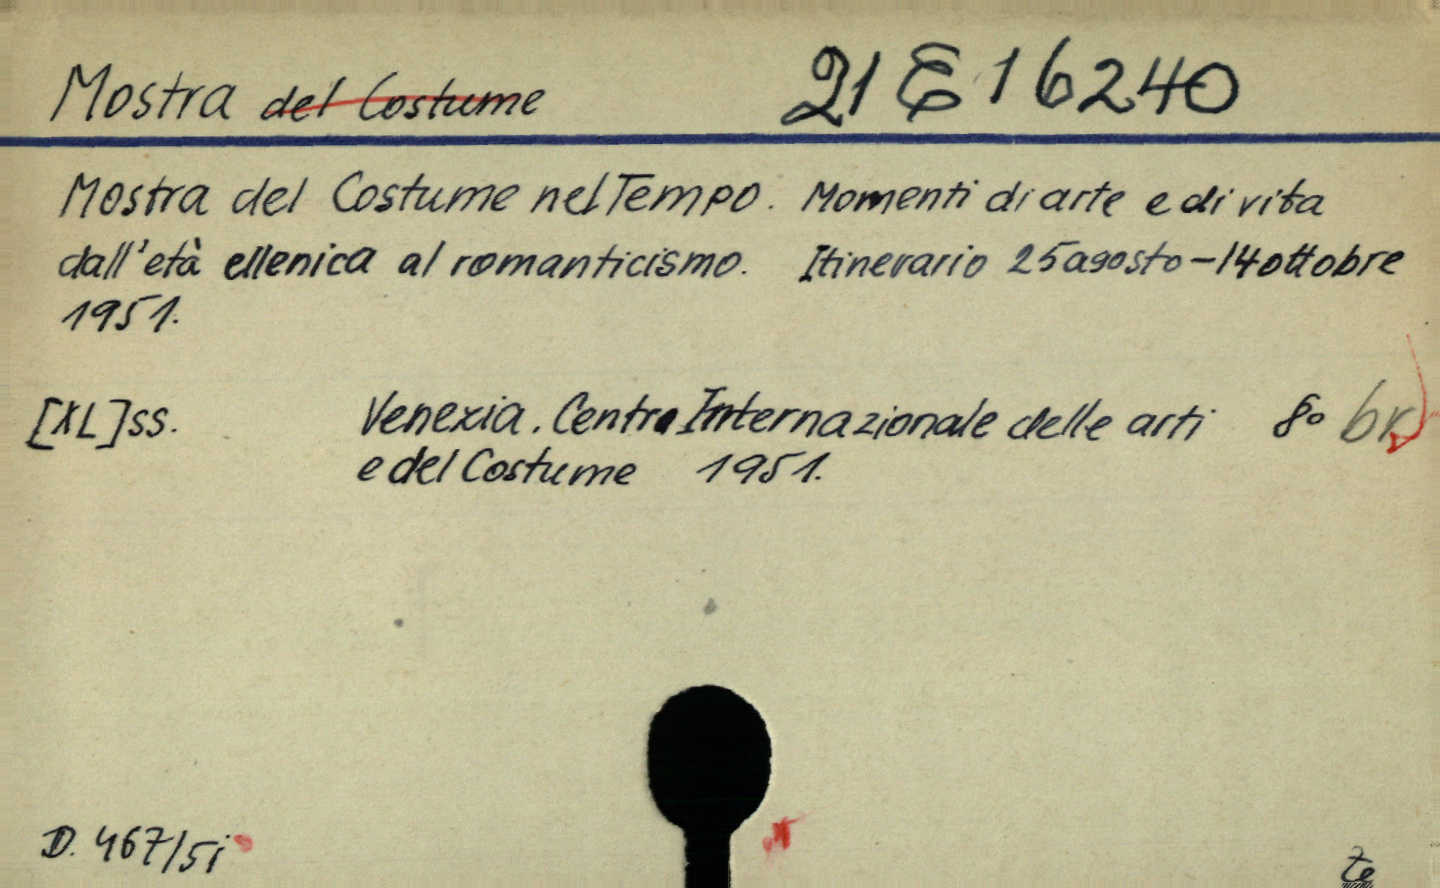 Mostra del Costume 21 E 16240
Mostra del Costume nel Tempo. Momenti di arte e di vita
dall'età ellenica al romanticismo. Itinerario 25 agosto - 14 ottobre
1951.
[XL] ss. Venezia. Centro Internazionale delle arti 8° br
e del Costume 1951.
D. 467/51
te